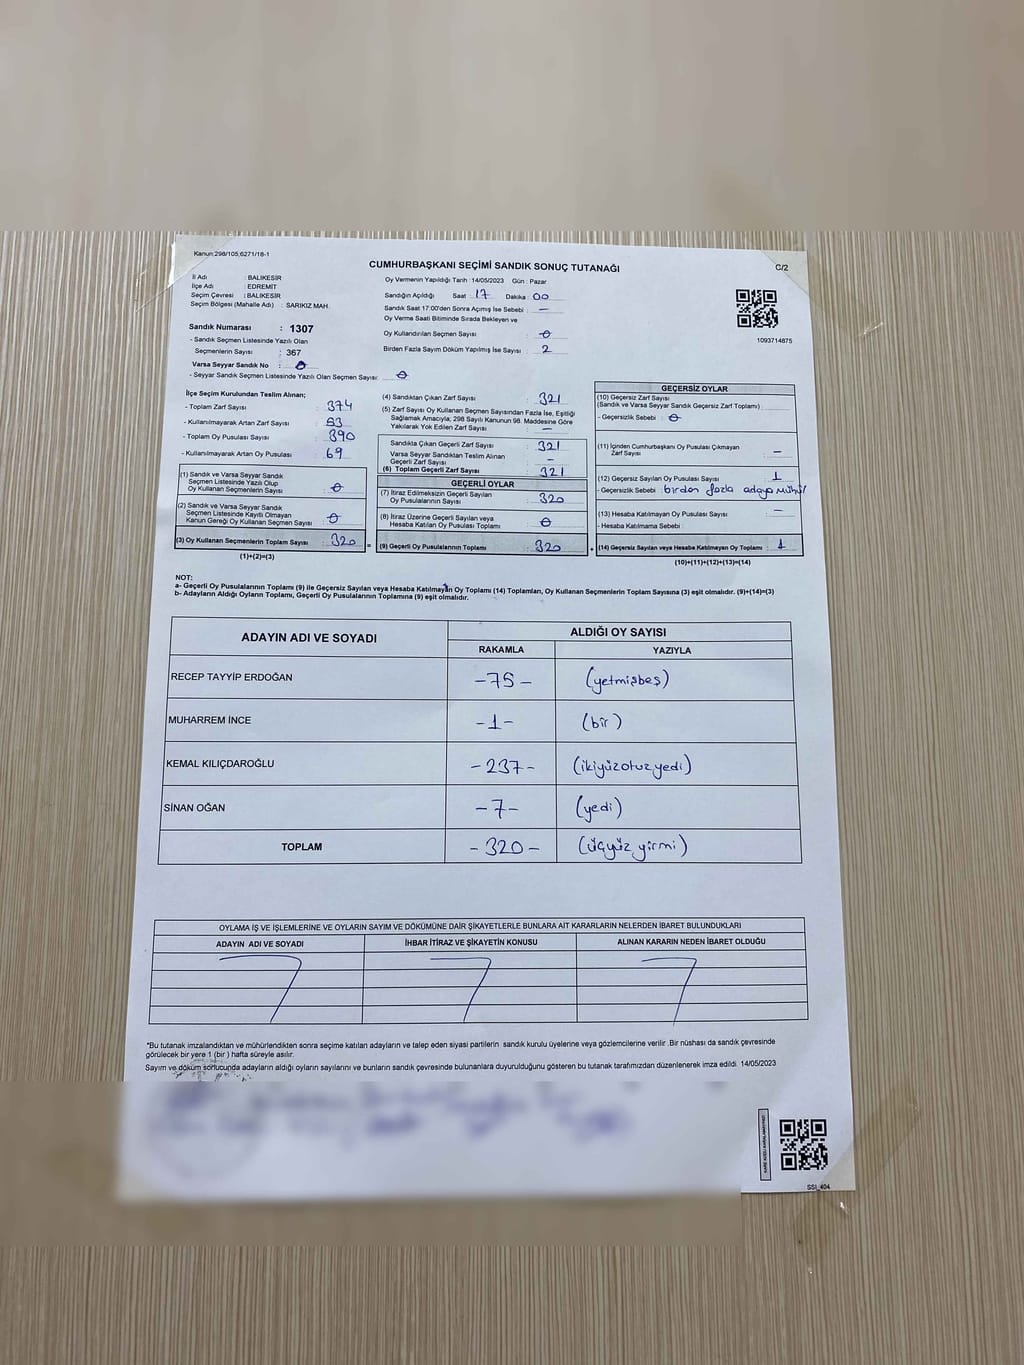 Kanun:298/105;6271/18-1
CUMHURBAŞKANI SEÇİMİ SANDIK SONUÇ TUTANAĞI
C/2
İl Adı : BALIKESİR
İlçe Adı : EDREMİT
Seçim Çevresi : BALIKESİR
Seçim Bölgesi (Mahalle Adı) : SARIKIZ MAH.
Sandık Numarası : 1307
- Sandık Seçmen Listesinde Yazılı Olan
Seçmenlerin Sayısı : 367
Varsa Seyyar Sandık No : 0
- Seyyar Sandık Seçmen Listesinde Yazılı Olan Seçmen Sayısı: 0
Oy Vermenin Yapıldığı Tarih :14/05/2023 Gün : Pazar
Sandığın Açıldığı Saat : 17 Dakika : 00
Sandık Saat 17:00'den Sonra Açımış İse Sebebi : —
Oy Verme Saati Bitiminde Sırada Bekleyen ve
Oy Kullandırılan Seçmen Sayısı : 0
Birden Fazla Sayım Döküm Yapılmış İse Sayısı : 2
1093714875
İlçe Seçim Kurulundan Teslim Alınan;
- Toplam Zarf Sayısı : 374
- Kullanılmayarak Artan Zarf Sayısı : 53
- Toplam Oy Pusulası Sayısı : 390
- Kullanılmayarak Artan Oy Pusulası : 69
(1) Sandık ve Varsa Seyyar Sandık
Seçmen Listesinde Yazılı Olup
Oy Kullanan Seçmenlerin Sayısı : 0
(2) Sandık ve Varsa Seyyar Sandık
Seçmen Listesinde Kayıtlı Olmayan
Kanun Gereği Oy Kullanan Seçmen Sayısı : 0
(3) Oy Kullanan Seçmenlerin Toplam Sayısı : 320
(1)+(2)=(3)
(4) Sandıktan Çıkan Zarf Sayısı : 321
(5) Zarf Sayısı Oy Kullanan Seçmen Sayısından Fazla İse, Eşitliği
Sağlamak Amacıyla; 298 Sayılı Kanunun 98. Maddesine Göre
Yakılarak Yok Edilen Zarf Sayısı : —
Sandıkta Çıkan Geçerli Zarf Sayısı : 321
Varsa Seyyar Sandıktan Teslim Alınan
Geçerli Zarf Sayısı : —
(6) Toplam Geçerli Zarf Sayısı : 321
GEÇERLİ OYLAR
(7) İtiraz Edilmeksizin Geçerli Sayılan
Oy Pusulalarının Sayısı : 320
(8) İtiraz Üzerine Geçerli Sayılan veya
Hesaba Katılan Oy Pusulası Toplamı : 0
= (9) Geçerli Oy Pusulalarının Toplamı : 320
GEÇERSİZ OYLAR
(10) Geçersiz Zarf Sayısı
(Sandık ve Varsa Seyyar Sandık Geçersiz Zarf Toplamı) :
- Geçersizlik Sebebi : 0
(11) İçinden Cumhurbaşkanı Oy Pusulası Çıkmayan
Zarf Sayısı : —
(12) Geçersiz Sayılan Oy Pusulası Sayısı : 1
- Geçersizlik Sebebi : birden fazla adaya mühür
(13) Hesaba Katılmayan Oy Pusulası Sayısı : —
- Hesaba Katılmama Sebebi :
+ (14) Geçersiz Sayılan veya Hesaba Katılmayan Oy Toplamı : 1
(10)+(11)+(12)+(13)=(14)
NOT:
a- Geçerli Oy Pusulalarının Toplamı (9) ile Geçersiz Sayılan veya Hesaba Katılmayan Oy Toplamı (14) Toplamları, Oy Kullanan Seçmenlerin Toplam Sayısına (3) eşit olmalıdır. (9)+(14)=(3)
b- Adayların Aldığı Oyların Toplamı, Geçerli Oy Pusulalarının Toplamına (9) eşit olmalıdır.
ADAYIN ADI VE SOYADI ALDIĞI OY SAYISI
RAKAMLA YAZIYLA
RECEP TAYYİP ERDOĞAN -75- (yetmişbeş)
MUHARREM İNCE -1- (bir)
KEMAL KILIÇDAROĞLU -237- (ikiyüzotuzyedi)
SİNAN OĞAN -7- (yedi)
TOPLAM -320- (üçyüz yirmi)
OYLAMA İŞ VE İŞLEMLERİNE VE OYLARIN SAYIM VE DÖKÜMÜNE DAİR ŞİKAYETLERLE BUNLARA AİT KARARLARIN NELERDEN İBARET BULUNDUKLARI
ADAYIN ADI VE SOYADI İHBAR İTİRAZ VE ŞİKAYETİN KONUSU ALINAN KARARIN NEDEN İBARET OLDUĞU
"Bu tutanak imzalandıktan ve mühürlendikten sonra seçime katılan adayların ve talep eden siyasi partilerin sandık kurulu üyelerine veya gözlemcilerine verilir .Bir nüshası da sandık çevresinde
görülecek bir yere 1 (bir ) hafta süreyle asılır.
Sayım ve döküm sonucunda adayların aldığı oyların sayılarını ve bunların sandık çevresinde bulunanlara duyurulduğunu gösteren bu tutanak tarafımızdan düzenlenerek imza edildi. 14/05/2023
SSİ_404